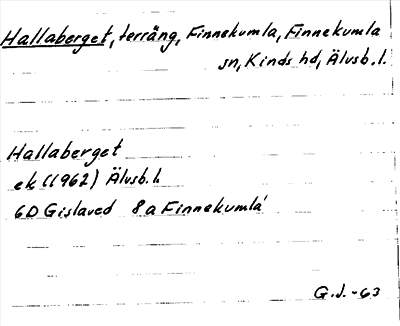 Hallaberget, terräng, Finnekumla, Finnekumla
sn, Kinds hd, Älvsb. l.
Hallaberget
ek (1962) Älvsb. l.
6D Gislaved 8a Finnekumla
G.J.-63